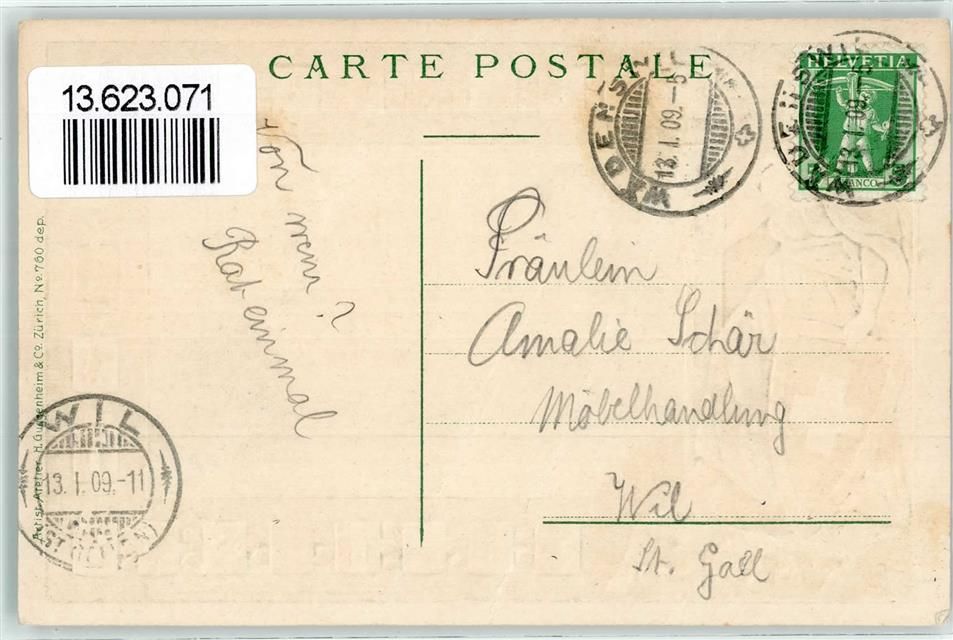 CARTE POSTALE
13.623.071
WÄDENSWIL
13.I.09.
WÄDENSWIL
13.I.09.
HELVETIA
FRANCO
Von wem?
Rat einmal
Fräulein
Amalie Schär
Möbelhandlung
Wil
St. Gall
WIL
13.I.09.-11
Artist. Atelier H. Guggenheim & Co. Zürich, No. 760 dep.